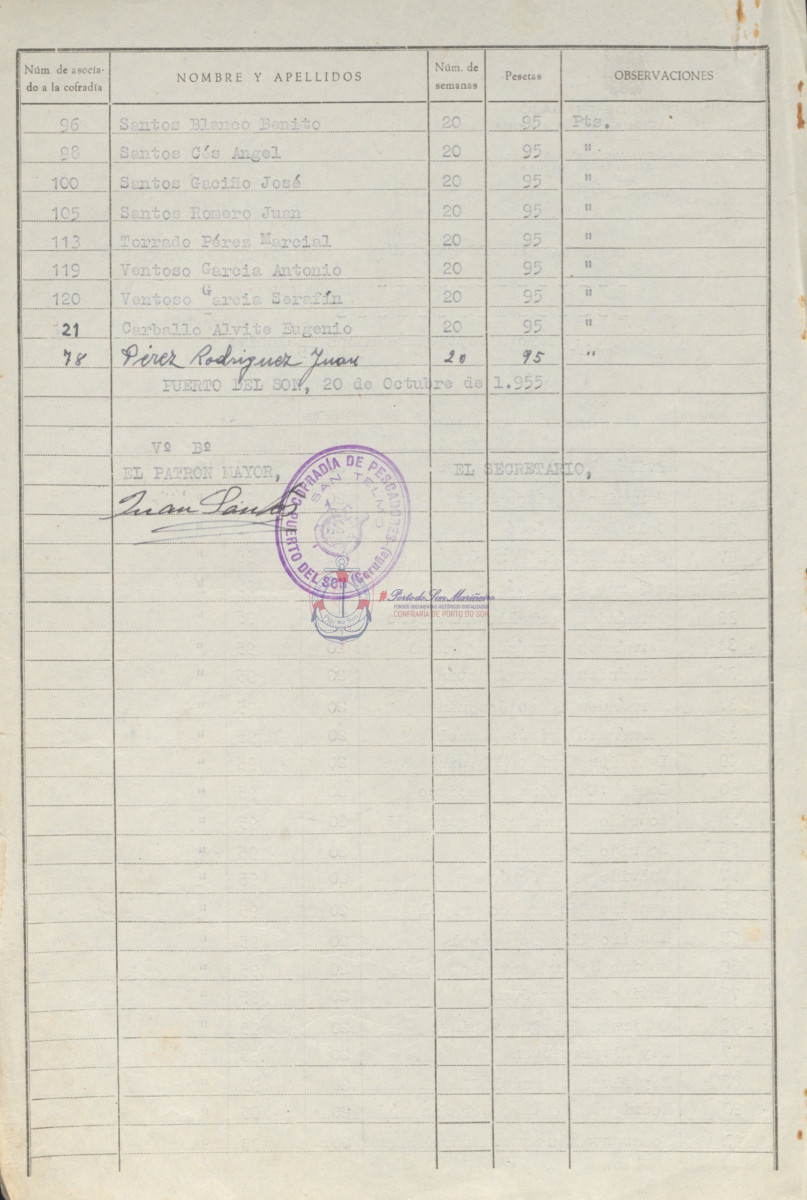 Núm. de asocia- NOMBRE Y APELLIDOS Núm. de Pesetas OBSERVACIONES
do a la cofradía semanas
96 Santos Blanco Benito 20 95 Pts.
98 Santos Cés Angel 20 95 "
100 Santos Gaciño José 20 95 "
105 Santos Romero Juan 20 95 "
113 Torrado Pérez Marcial 20 95 "
119 Ventoso Garcia Antonio 20 95 "
120 Ventoso Garcia Serafín 20 95 "
21 Carballo Alvite Eugenio 20 95 "
78 Pérez Rodriguez Juan 20 95 "
PUERTO DEL SON, 20 de Octubre de 1.955
Vº Bº
EL PATRON MAYOR, EL SECRETARIO,
Juan Santos
COFRADÍA DE PESCADORES
SAN TELMO
PUERTO DEL SON (Coruña)
#Porto do Son Mariñeiro
FONDOS DOCUMENTAIS HISTÓRICOS DIXITALIZADOS
CONFRARÍA DE PORTO DO SON